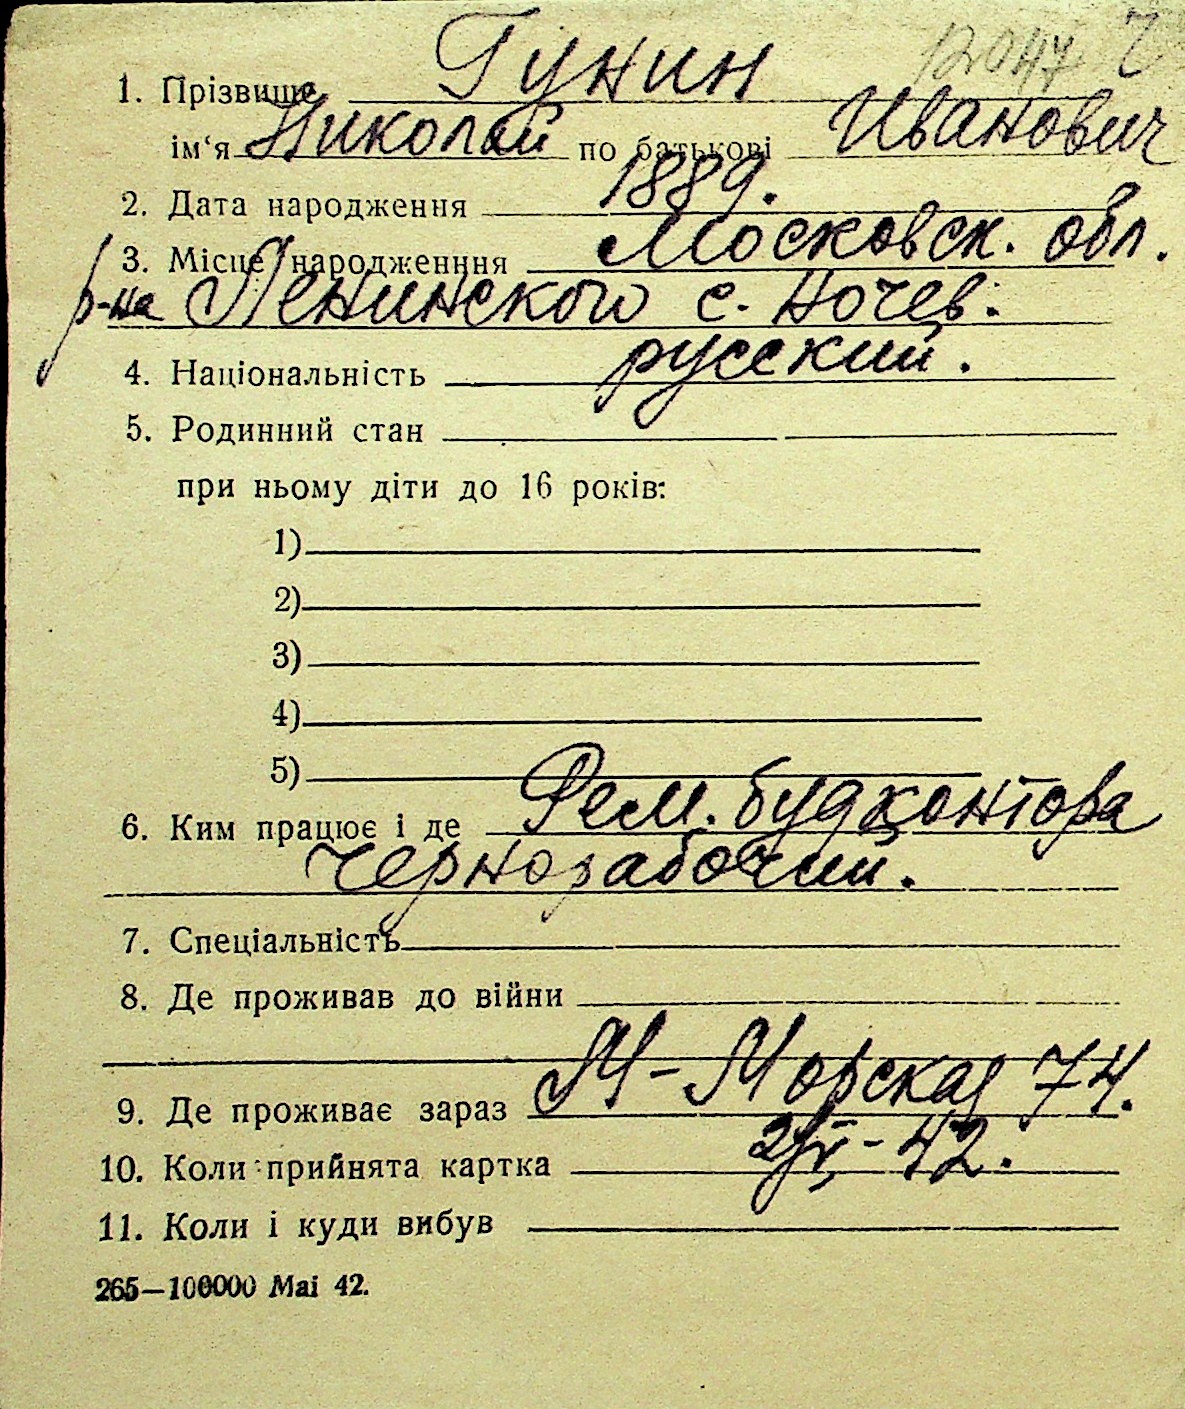 12047
1. Прізвище Гунин
ім‘я Николай по батькові Иванович
2. Дата народження 1889.
3. Місце народженння Московск. обл.
р-на Ленинского с. Ночев.
4. Національність русский.
5. Родинний стан
при ньому діти до 16 років:
1)
2)
3)
4)
5)
6. Ким працює і де Рем. будконтора
Чернорабочий.
7. Спеціальність
8. Де проживав до війни
9. Де проживає зараз М-Морская 74.
10. Коли прийнята картка 42.
11. Коли і куди вибув
265—100000 Mai 42.